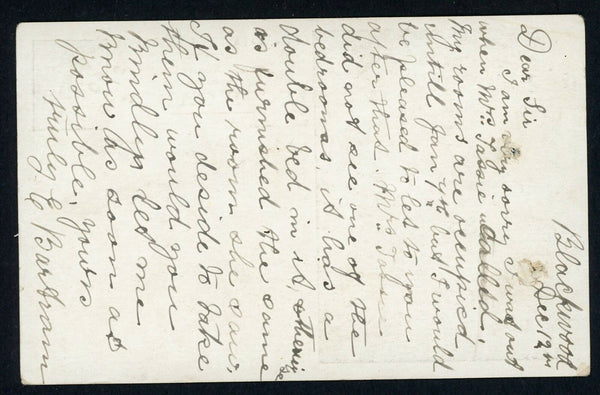 Blackwood
Dec 12th
Dear Sir
I am very sorry I was out
when Mrs. Tassie called,
My rooms are occupied
untill Jan 4th but I would
be pleased to let to you
after that. Mrs Tassie
did not see one of the
bedrooms, it has a
double bed in it, & then
is furnished the same
as the room she saw.
If you deside to take
them would you
kindly let me
know as soon as
possible, yours
truly E Bartram